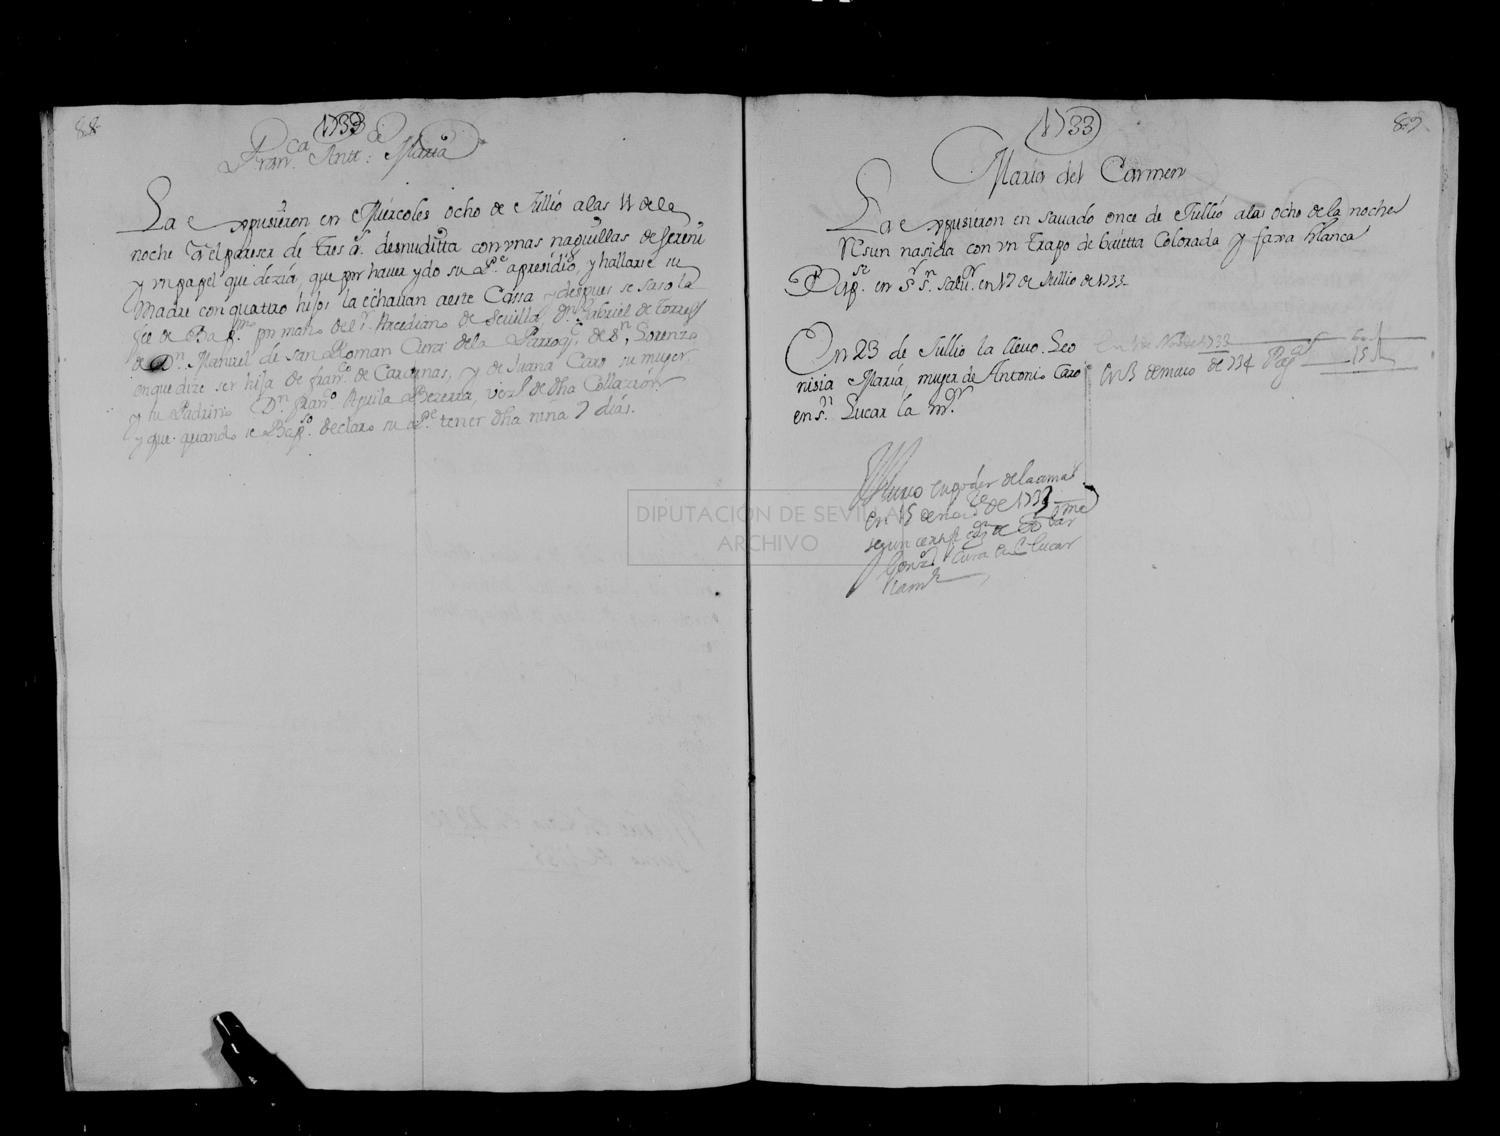 88
1733
Franca. Antta. Maria
La expusieron en Miercoles ocho de Jullio a las 11 de la
noche Al pareser de tres as. desnuditta con vnas naguillas de
y vn papel que dezia, que por hauer ydo su Pe. a presidio, y hallarse su
Madre con quattro hijos la echauan a este Cassa y despues se saco la
fee de Bapmo. por mano del Sr. Arcediano de Sevilla Dn. Gabriel de Torres
de Dn. Manuel de san Roman Cura de la Parroq. de Sn. Lorenzo
en que dize ser hija de Franco. de Carcenas, y de Juana Caro su muger
y su Padrino Dn. Franco. Aguila Bezerra, vezo. de dha Collazion
y que quando se Bapso. declaro su Pe. tener dha nina 7 dias.
89
1733
Maria del Carmen
La expusieron en sauado once de Jullio a las ocho de la noche
Rsun nasida con vn trapo de baietta Colorada y faxa blanca
Bapse. en Sr. Sn. Salur. en 17 de Jullio de 1733
En 23 de Jullio la lleuo Leo
nisia Maria, muger de Antonio Caro
en Sn. Lucar la mor.
1733
En 3 de março de 734 Pag
15
Murio en poder de la ama
en 15 de de 1733
segun certifn. de
Gonz. Cura en S Lucar